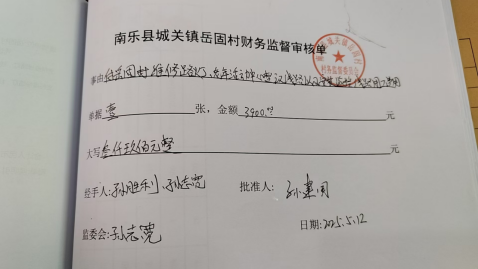 南乐县城关镇岳固村财务监督审核单
事由:岳固村维修
单据 壹 张，金额 3900.00 元
大写 叁仟玖佰元整 元
经手人:孙胜利 孙志宽 批准人: 孙建国
监委会:孙志宽 日期:2025.5.12